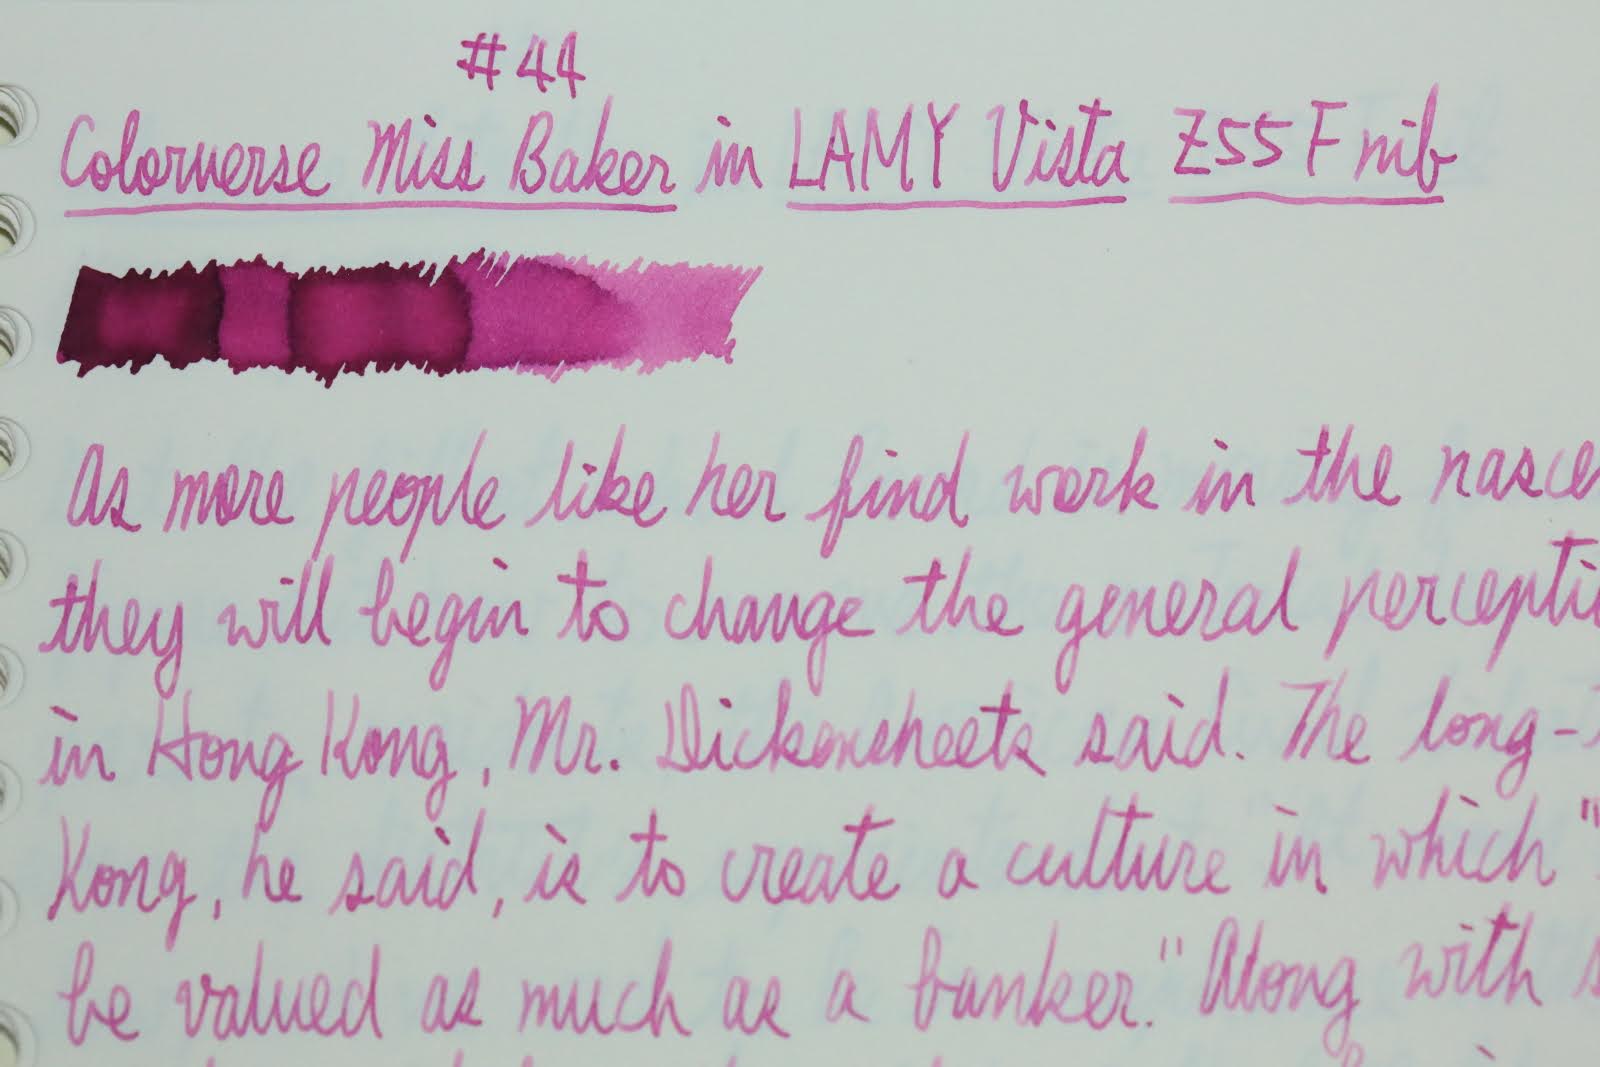 #44
Colorverse Miss Baker in LAMY Vista Z55 F nib
As more people like her find work in the nasce
they will begin to change the general percepti
in Hong Kong, Mr. Dickensheets said. The long-
Kong, he said, is to create a culture in which "
be valued as much as a banker." Along with s